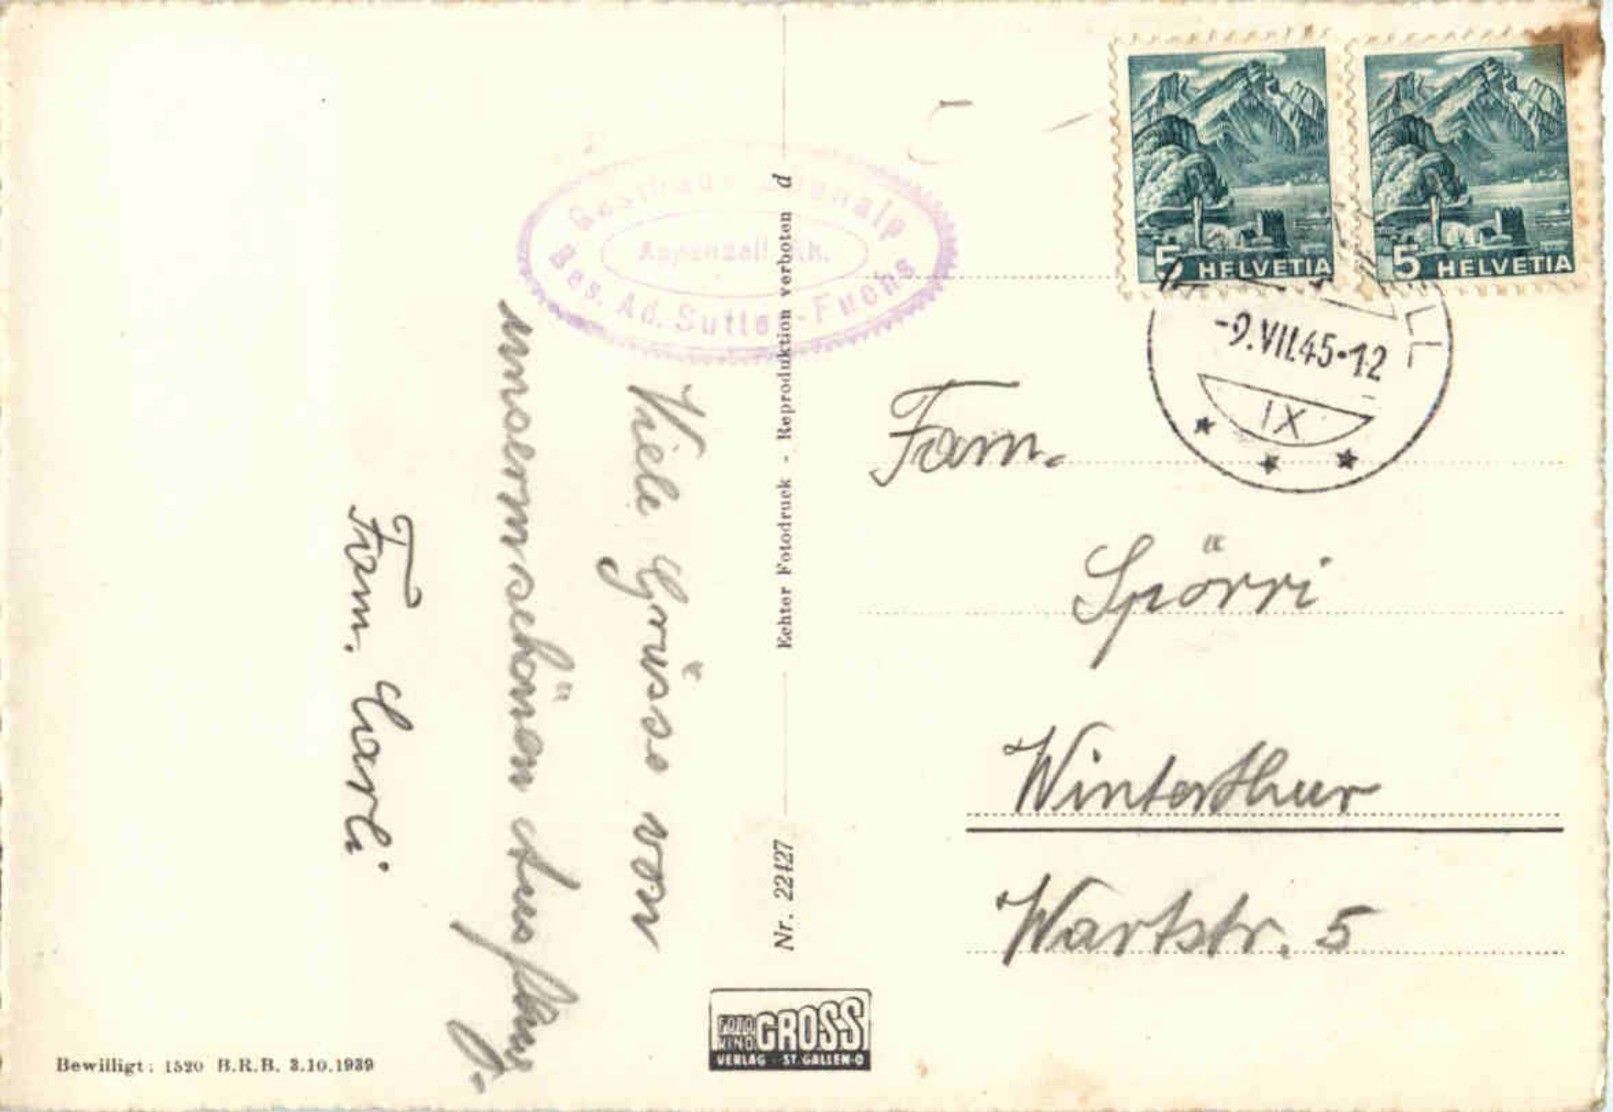 Viele Grüsse von
unserm schönen Ausflug
Fam. Carli
Bes. Ad. Sutter-Fuchs
Echter Fotodruck - Reproduktion verboten d
Nr. 22427
5 HELVETIA
5 HELVETIA
-9.VII.45-12
IX
Fam.
Spörri
Winterthur
Wartstr. 5
FOTO KINO GROSS
VERLAG ST. GALLEN-O
Bewilligt: 1520 B.R.B. 3.10.1939